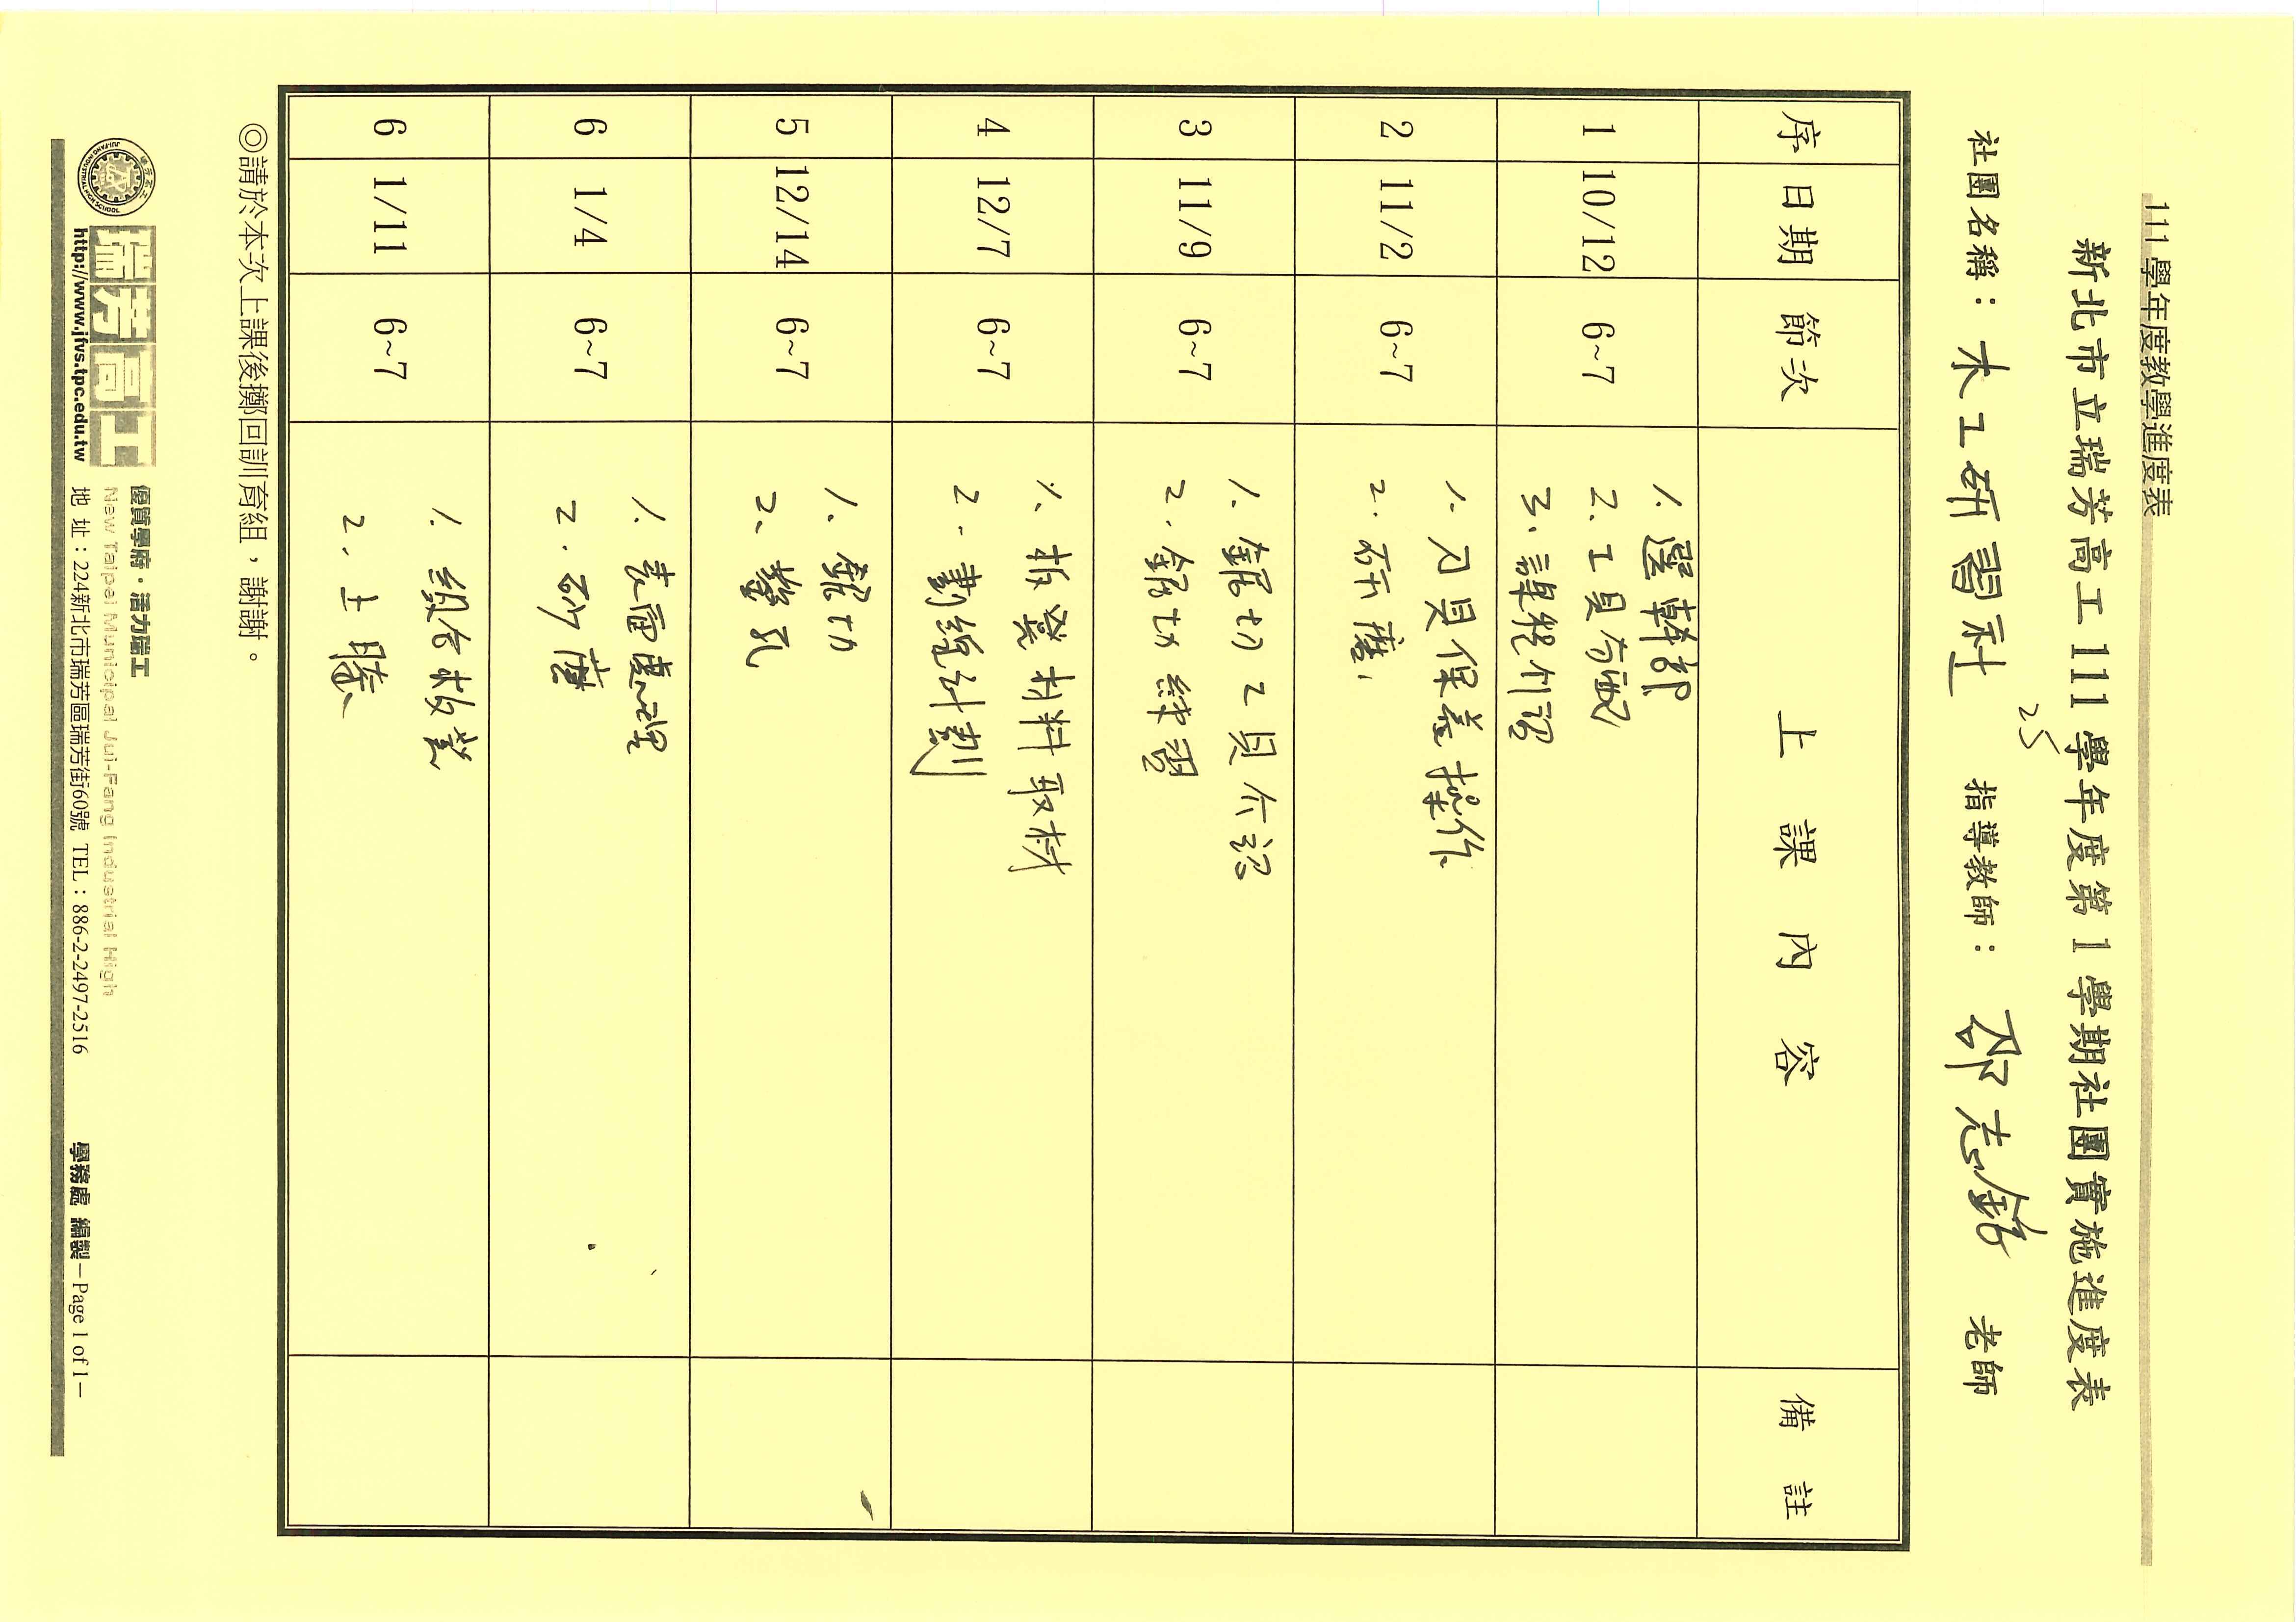 111 學年度教學進度表
新北市立瑞芳高工 111 學年度第 1 學期社團實施進度表
25
社團名稱： 木工研習社 指導教師： 邵志銘 老師
序 日期 節次 上課內容 備註
1 10/12 6~7
1. 選幹部
2. 工具分配
3. 課程介紹
2 11/2 6~7
1. 刀具保養操作
2. 研磨
3 11/9 6~7
1. 鋸切工具介紹
2. 鋸切練習
4 12/7 6~7
1. 板凳材料取材
2. 劃線計劃
5 12/14 6~7
1. 鋸切
2. 鑿孔
6 1/4 6~7
1. 表面處理
2. 砂磨
6 1/11 6~7
1. 組合板凳
2. 上膝
◎請於本次上課後擲回訓育組，謝謝。
瑞芳高工
優質學府・活力瑞工
New Taipei Municipal Jui-Fang Industrial High
http://www.jfvs.tpc.edu.tw 地 址：224新北市瑞芳區瑞芳街60號 TEL：886-2-2497-2516 學務處 編製－Page 1 of 1－